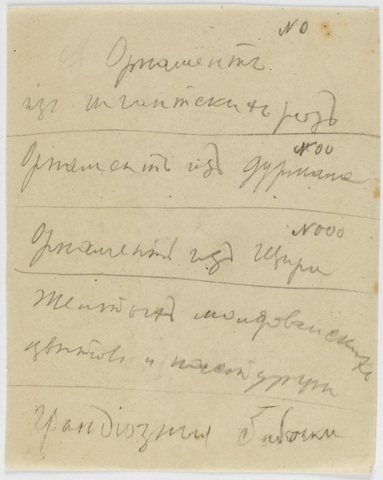 N0
Орнаментъ
изъ гигантскихъ розъ
N00
Орнаментъ изъ дурмана
N000
Орнаментъ изъ Щира
Желтыхъ молдаванскихъ
цвѣтовъ и настурции
Грандіозныя бабочки